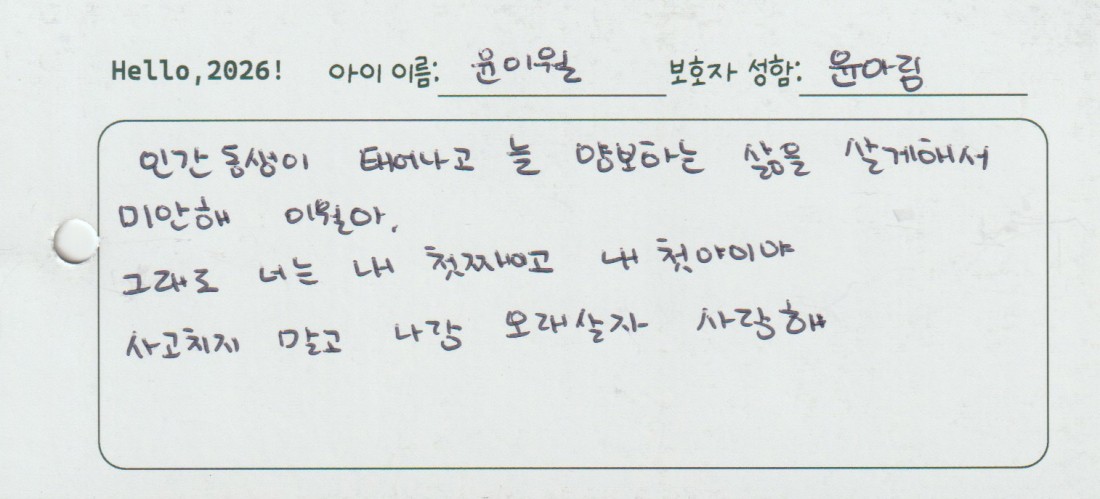 Hello,2026! 아이 이름: 윤이월 보호자 성함: 윤아림
인간 동생이 태어나고 늘 양보하는 삶을 살게해서
미안해 이월아,
그래도 너는 내 첫째이고 내 첫아이야
사고치지 말고 나랑 오래살자 사랑해